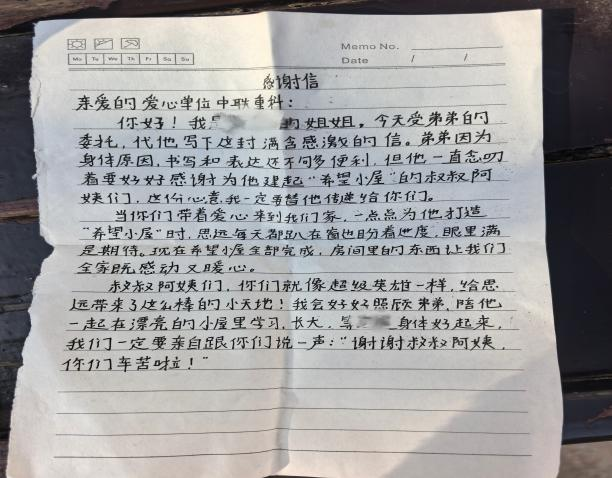 Memo No.
Mo Tu We Th Fr Sa Su
Date / /
感谢信
亲爱的爱心单位中联重科：
你好！我是 的姐姐。今天受弟弟的
委托，代他写下这封满含感激的信。弟弟因为
身体原因，书写和表达还不够便利，但他一直念叨
着要好好感谢为他建起“希望小屋”的叔叔阿
姨们，这份心意我一定要替他传递给你们。
当你们带着爱心来到我们家，一点点为他打造
“希望小屋”时，思远每天都趴在窗边盼着进度，眼里满
是期待。现在希望小屋全部完成，房间里的东西让我们
全家既感动又暖心。
叔叔阿姨们，你们就像超级英雄一样，给思
远带来了这么棒的小天地！我会好好照顾弟弟，陪他
一起在漂亮的小屋里学习、长大，等 身体好起来，
我们一定要亲自跟你们说一声：“谢谢叔叔阿姨，
你们辛苦啦！”